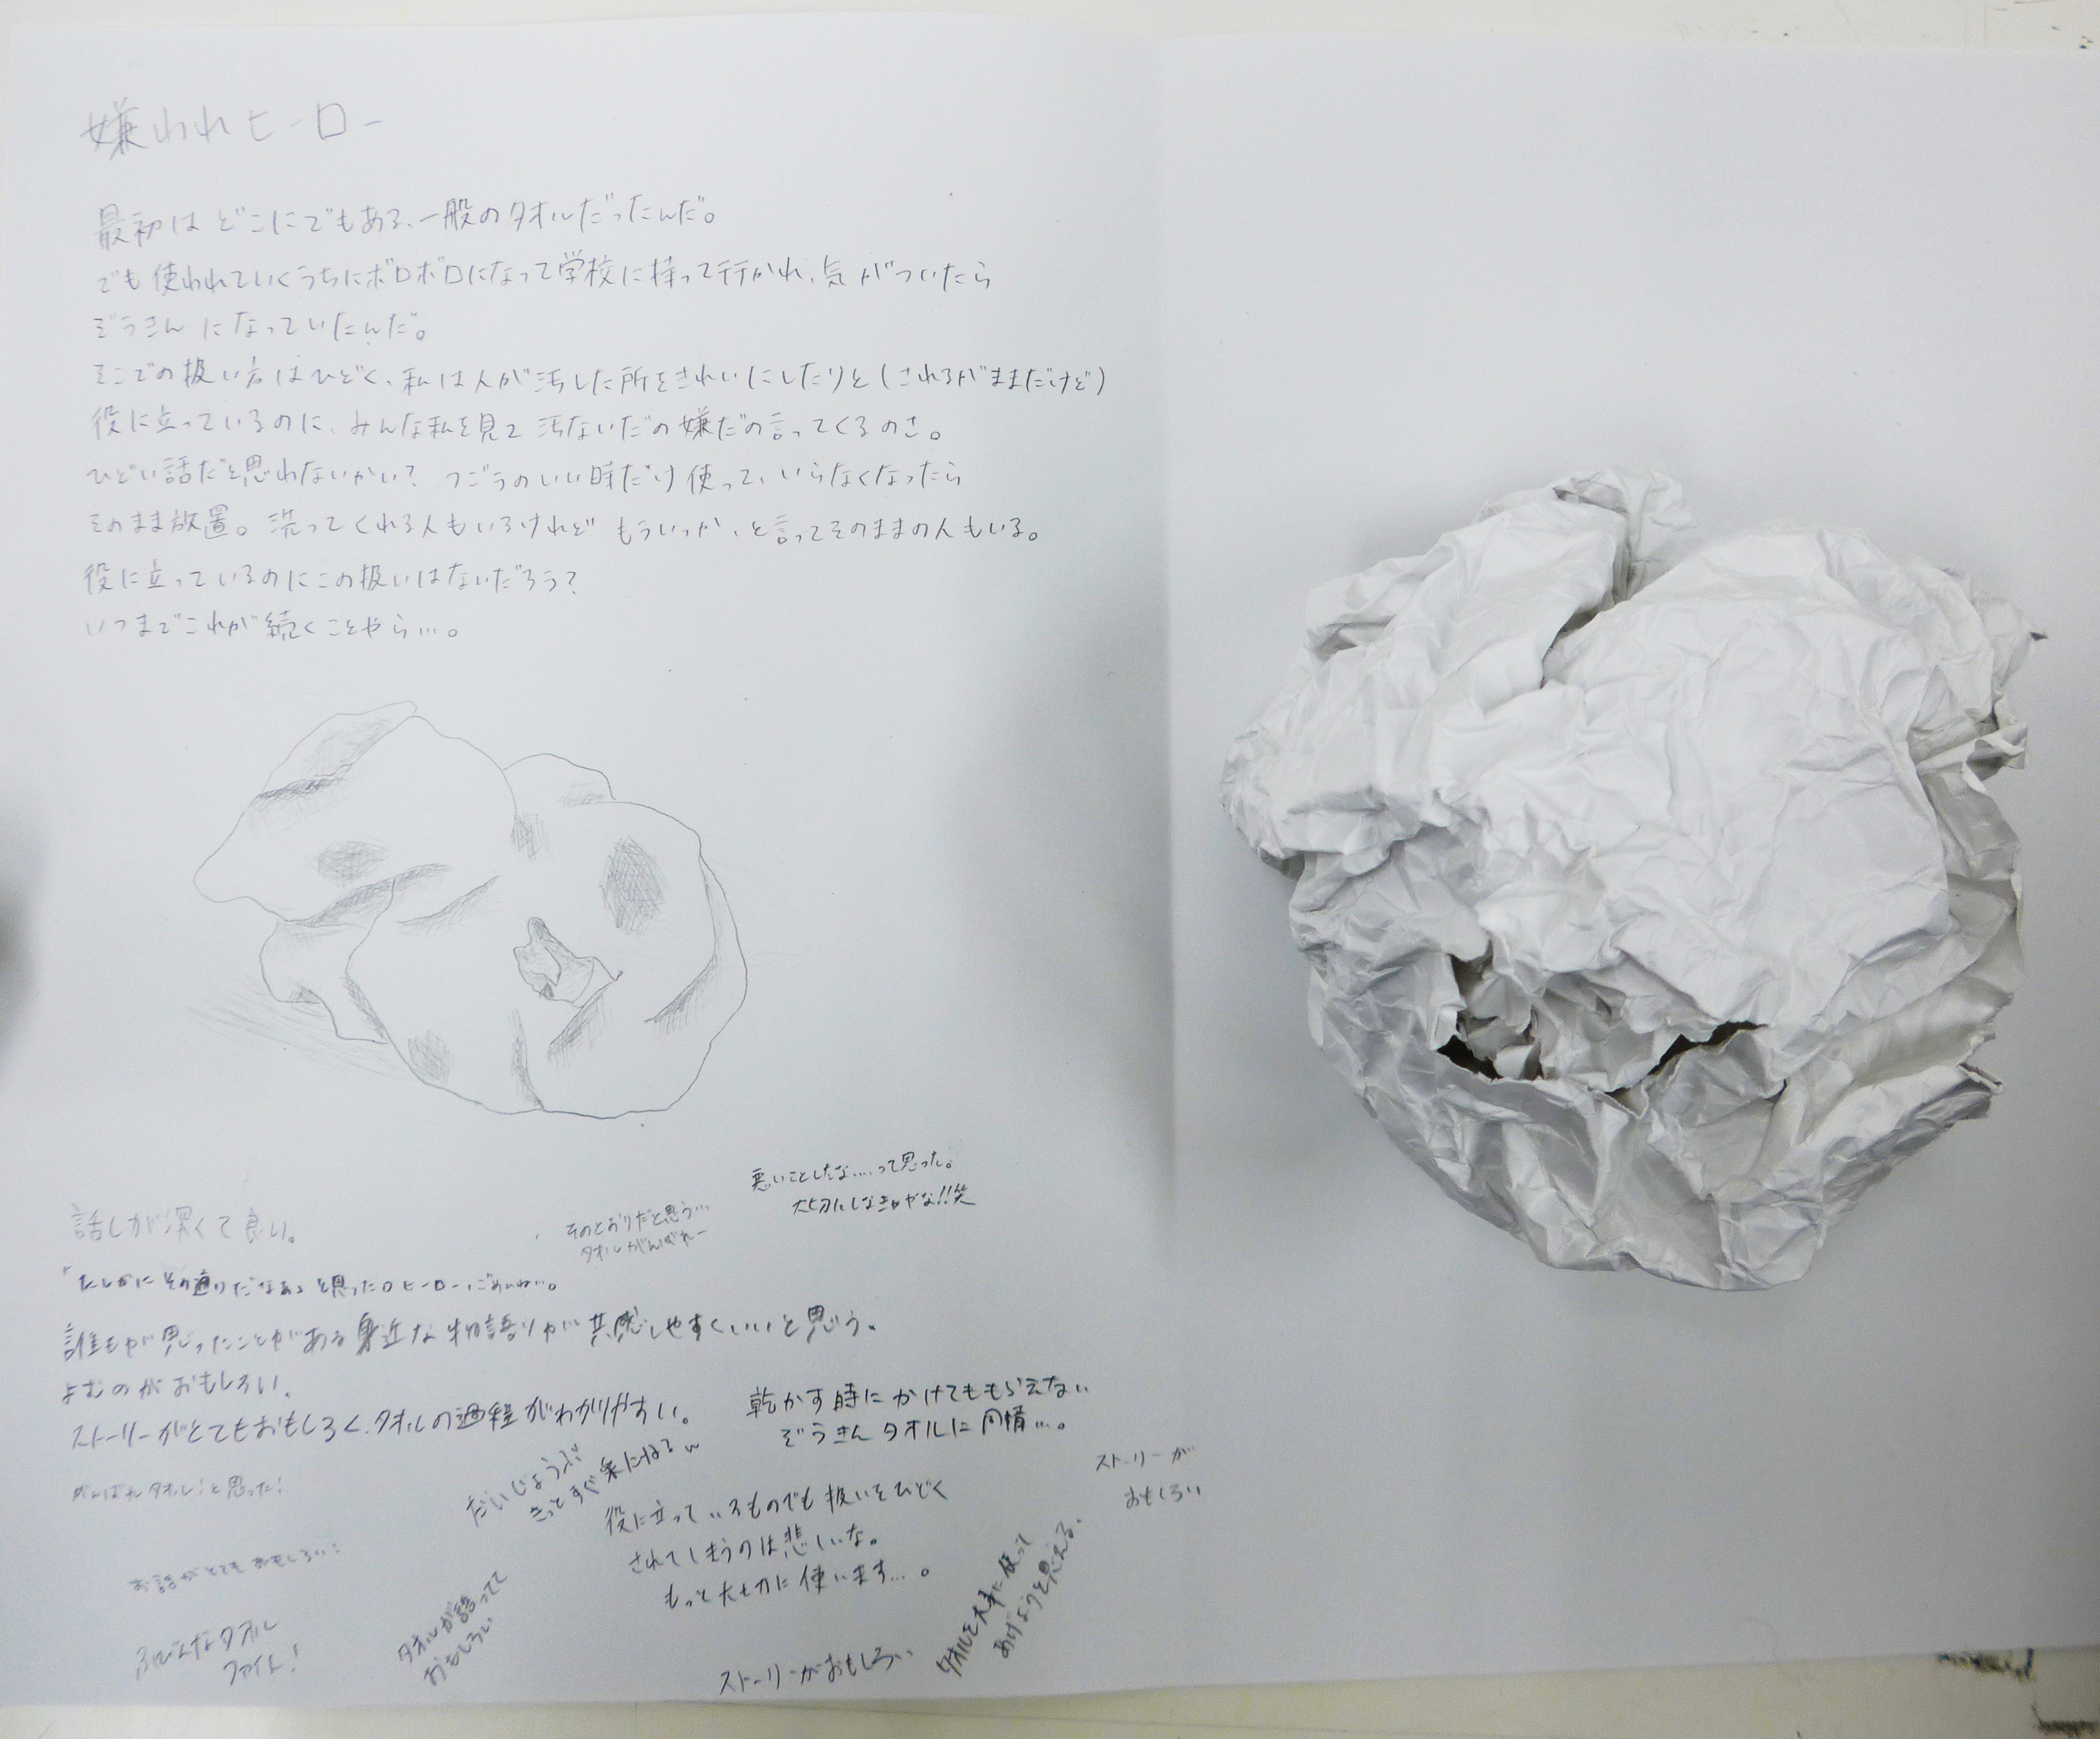 嫌われヒーロー
最初はどこにでもある、一般のタオルだったんだ。
でも使われていくうちにボロボロになって学校に持って行かれ、気がついたら
ぞうきんになっていたんだ。
そこでの扱い方はひどく、私は人が汚した所をきれいにしたりと(されるがままだけど)
役に立っているのに、みんな私を見て汚ないだの嫌だの言ってくるのさ。
ひどい話だと思わないかい? つごうのいい時だけ使って、いらなくなったら
そのまま放置。洗ってくれる人もいるけれど もういっか、と言ってそのままの人もいる。
役に立っているのにこの扱いはないだろう?
いつまでこれが続くことやら…。
悪いことしたな....って思った。
大切にしなきゃな!!笑
そのとおりだと思う…
タオルがんばれー
話しが深くて良い。
「たしかにその通りだなぁ」と思った ヒーロー、ごめんね…。
誰もが思ったことがある身近な物語りが共感しやすくいいと思う。
よむのがおもしろい。
ストーリーがとてもおもしろく、タオルの過程がわかりやすい。
乾かす時にかけてももらえない
ぞうきんタオルに同情…。
がんばれタオル!と思った!
だいじょうぶ
きっとすぐ楽になるw
ストーリーが
おもしろい
役に立っているものでも扱いをひどく
されてしまうのは悲しいな。
もっと大切に使います…。
お話がとてもおもしろい!
タオルを大事に使って
あげようと思える。
タオルが語ってて
おもしろい
ふびんなタオル
ファイト!
ストーリーがおもしろい